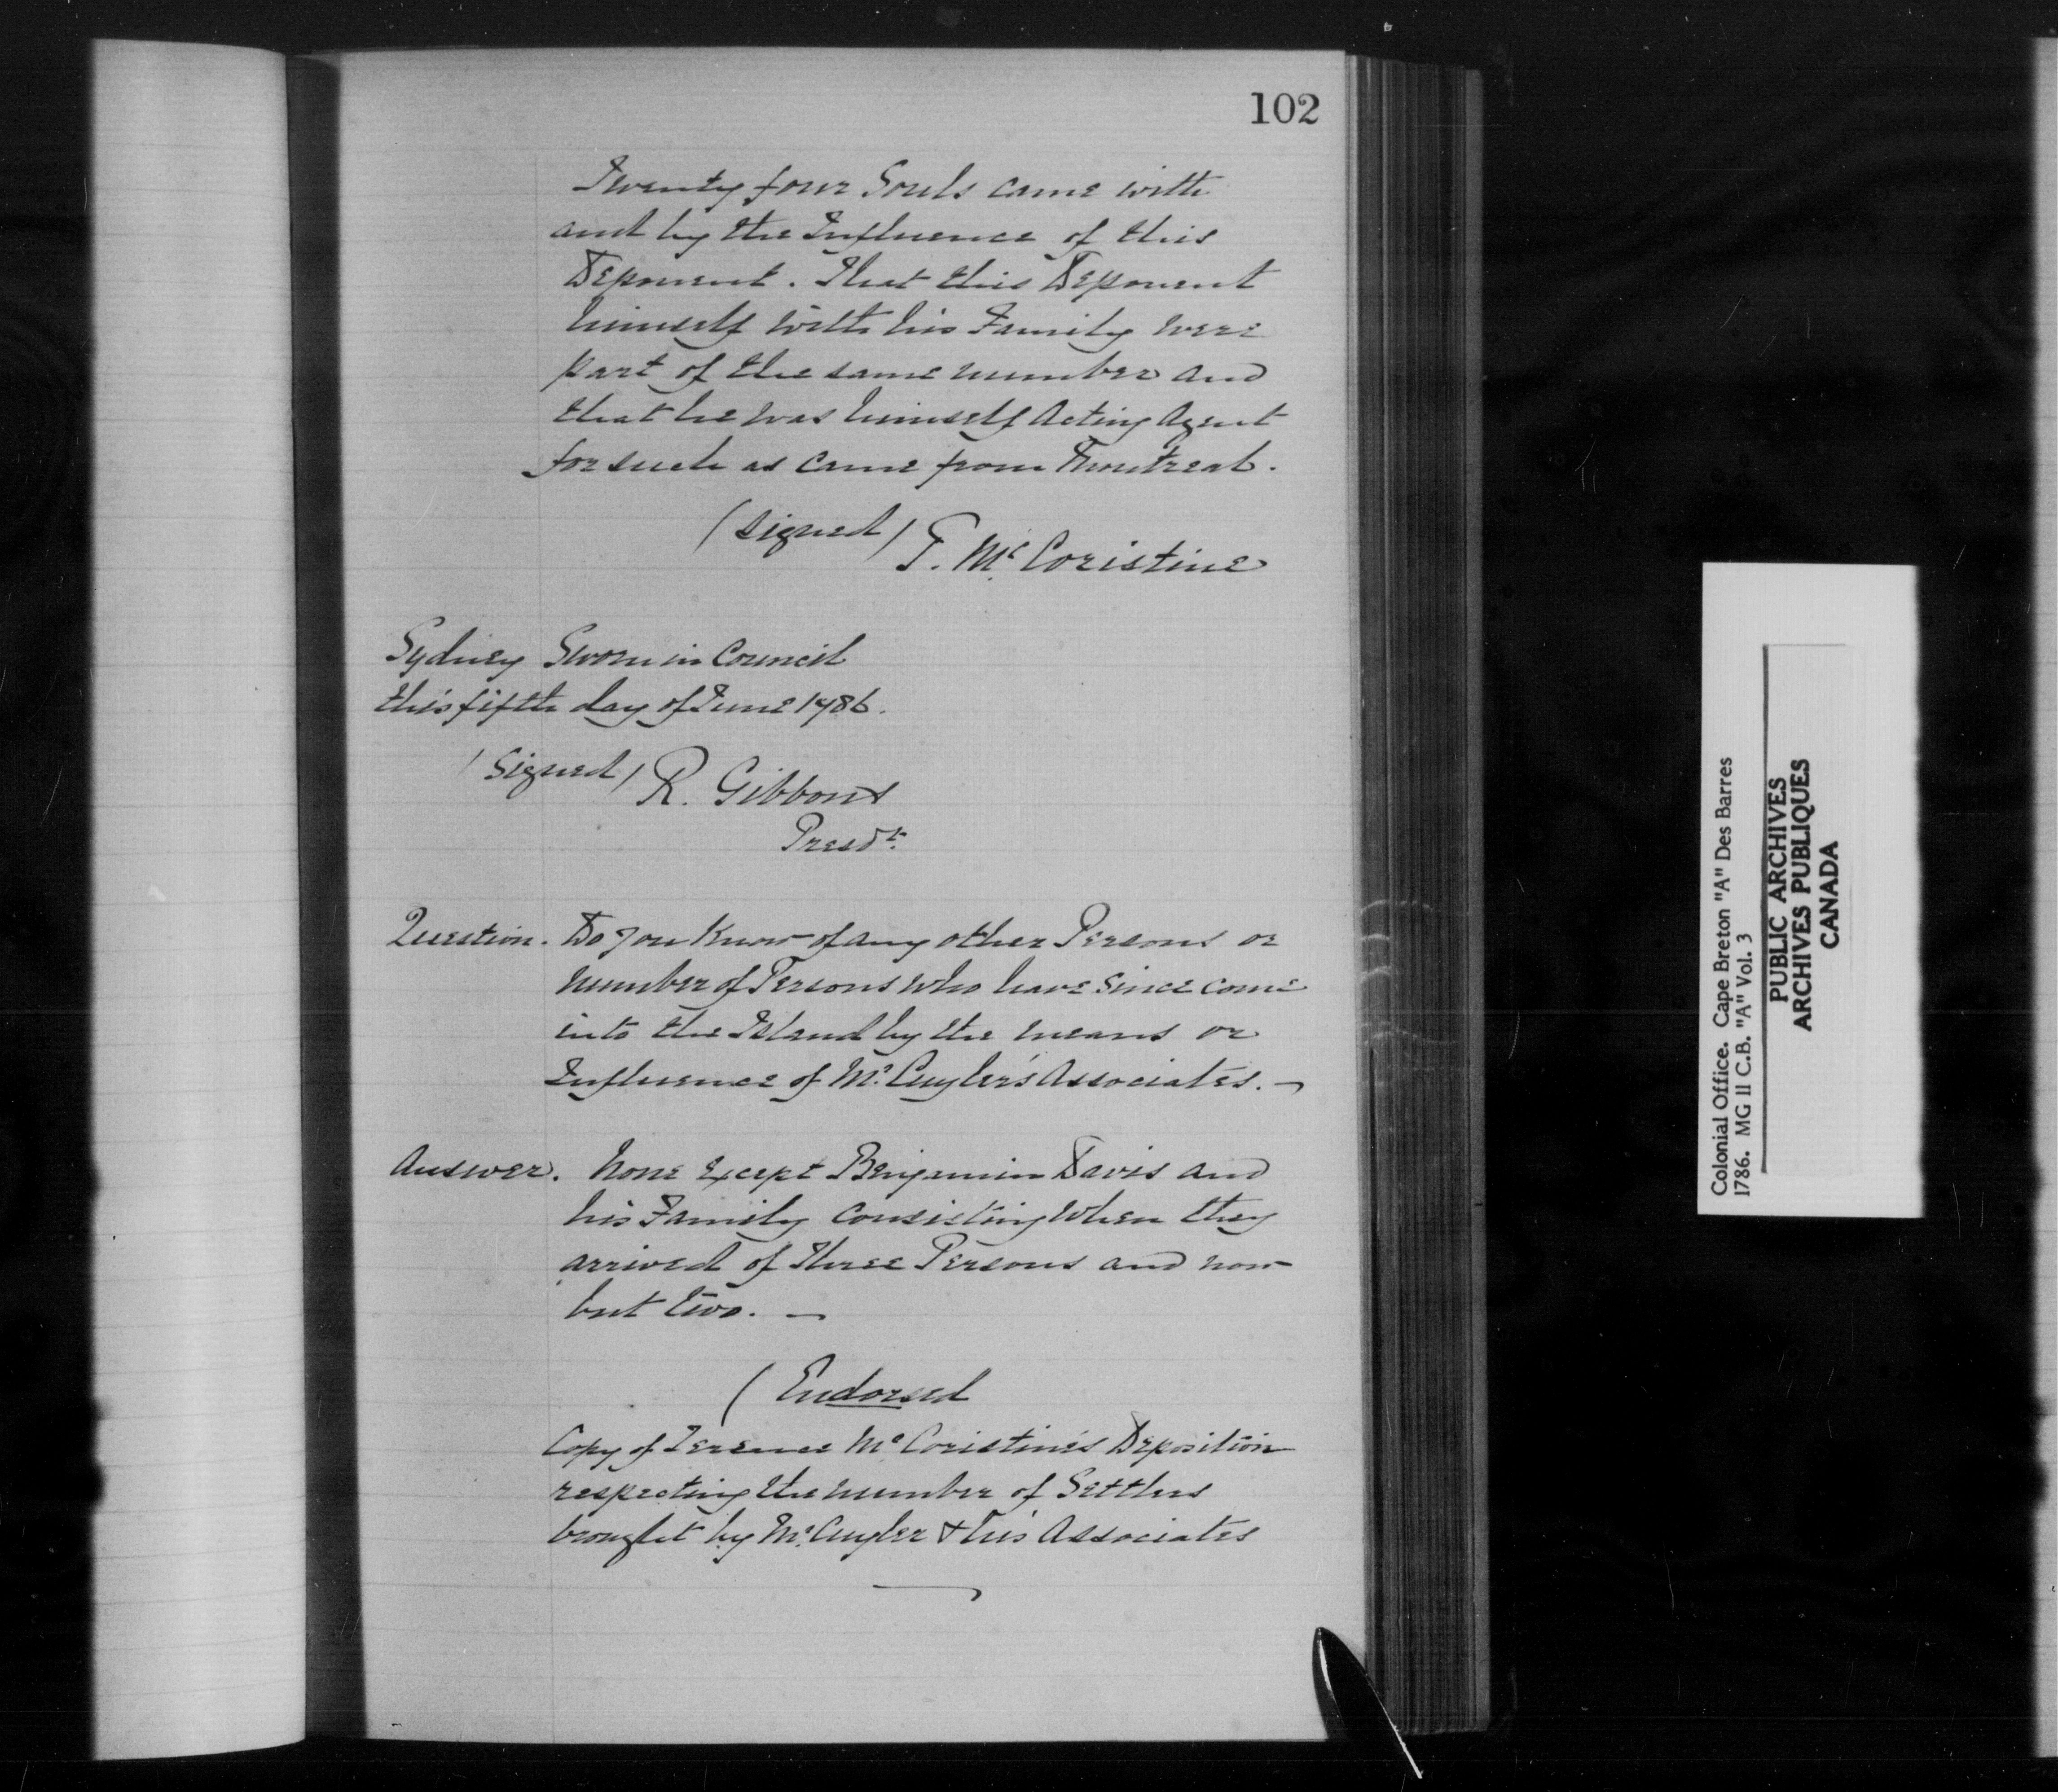 102
Twenty four Souls came with
and by the Influence of this
Deponent. That this Deponent
himself with his Family were
part of the same number and
that he was himself Acting Agent
for such as came from Montreal.
(signed) T. Mc Coristine
Sydney Sworn in Council
this fifth day of June 1786.
(Signed) R. Gibbons
Presdt.
Question. Do you Know of any other Persons or
number of Persons who have since come
into the Island by the means or
Influence of Mr. Cuyler's Associates. —
Answer. None Except Benjamin Davis and
his Family Consisting when they
arrived of Three Persons and now
but two. —
(Endorsed
Copy of Terence Mc Coristine's Deposition
respecting the number of Settlers
brought by Mr. Cuyler & his Associates
Colonial Office. Cape Breton "A" Des Barres
1786. MG 11 C.B. "A" Vol. 3
PUBLIC ARCHIVES
ARCHIVES PUBLIQUES
CANADA